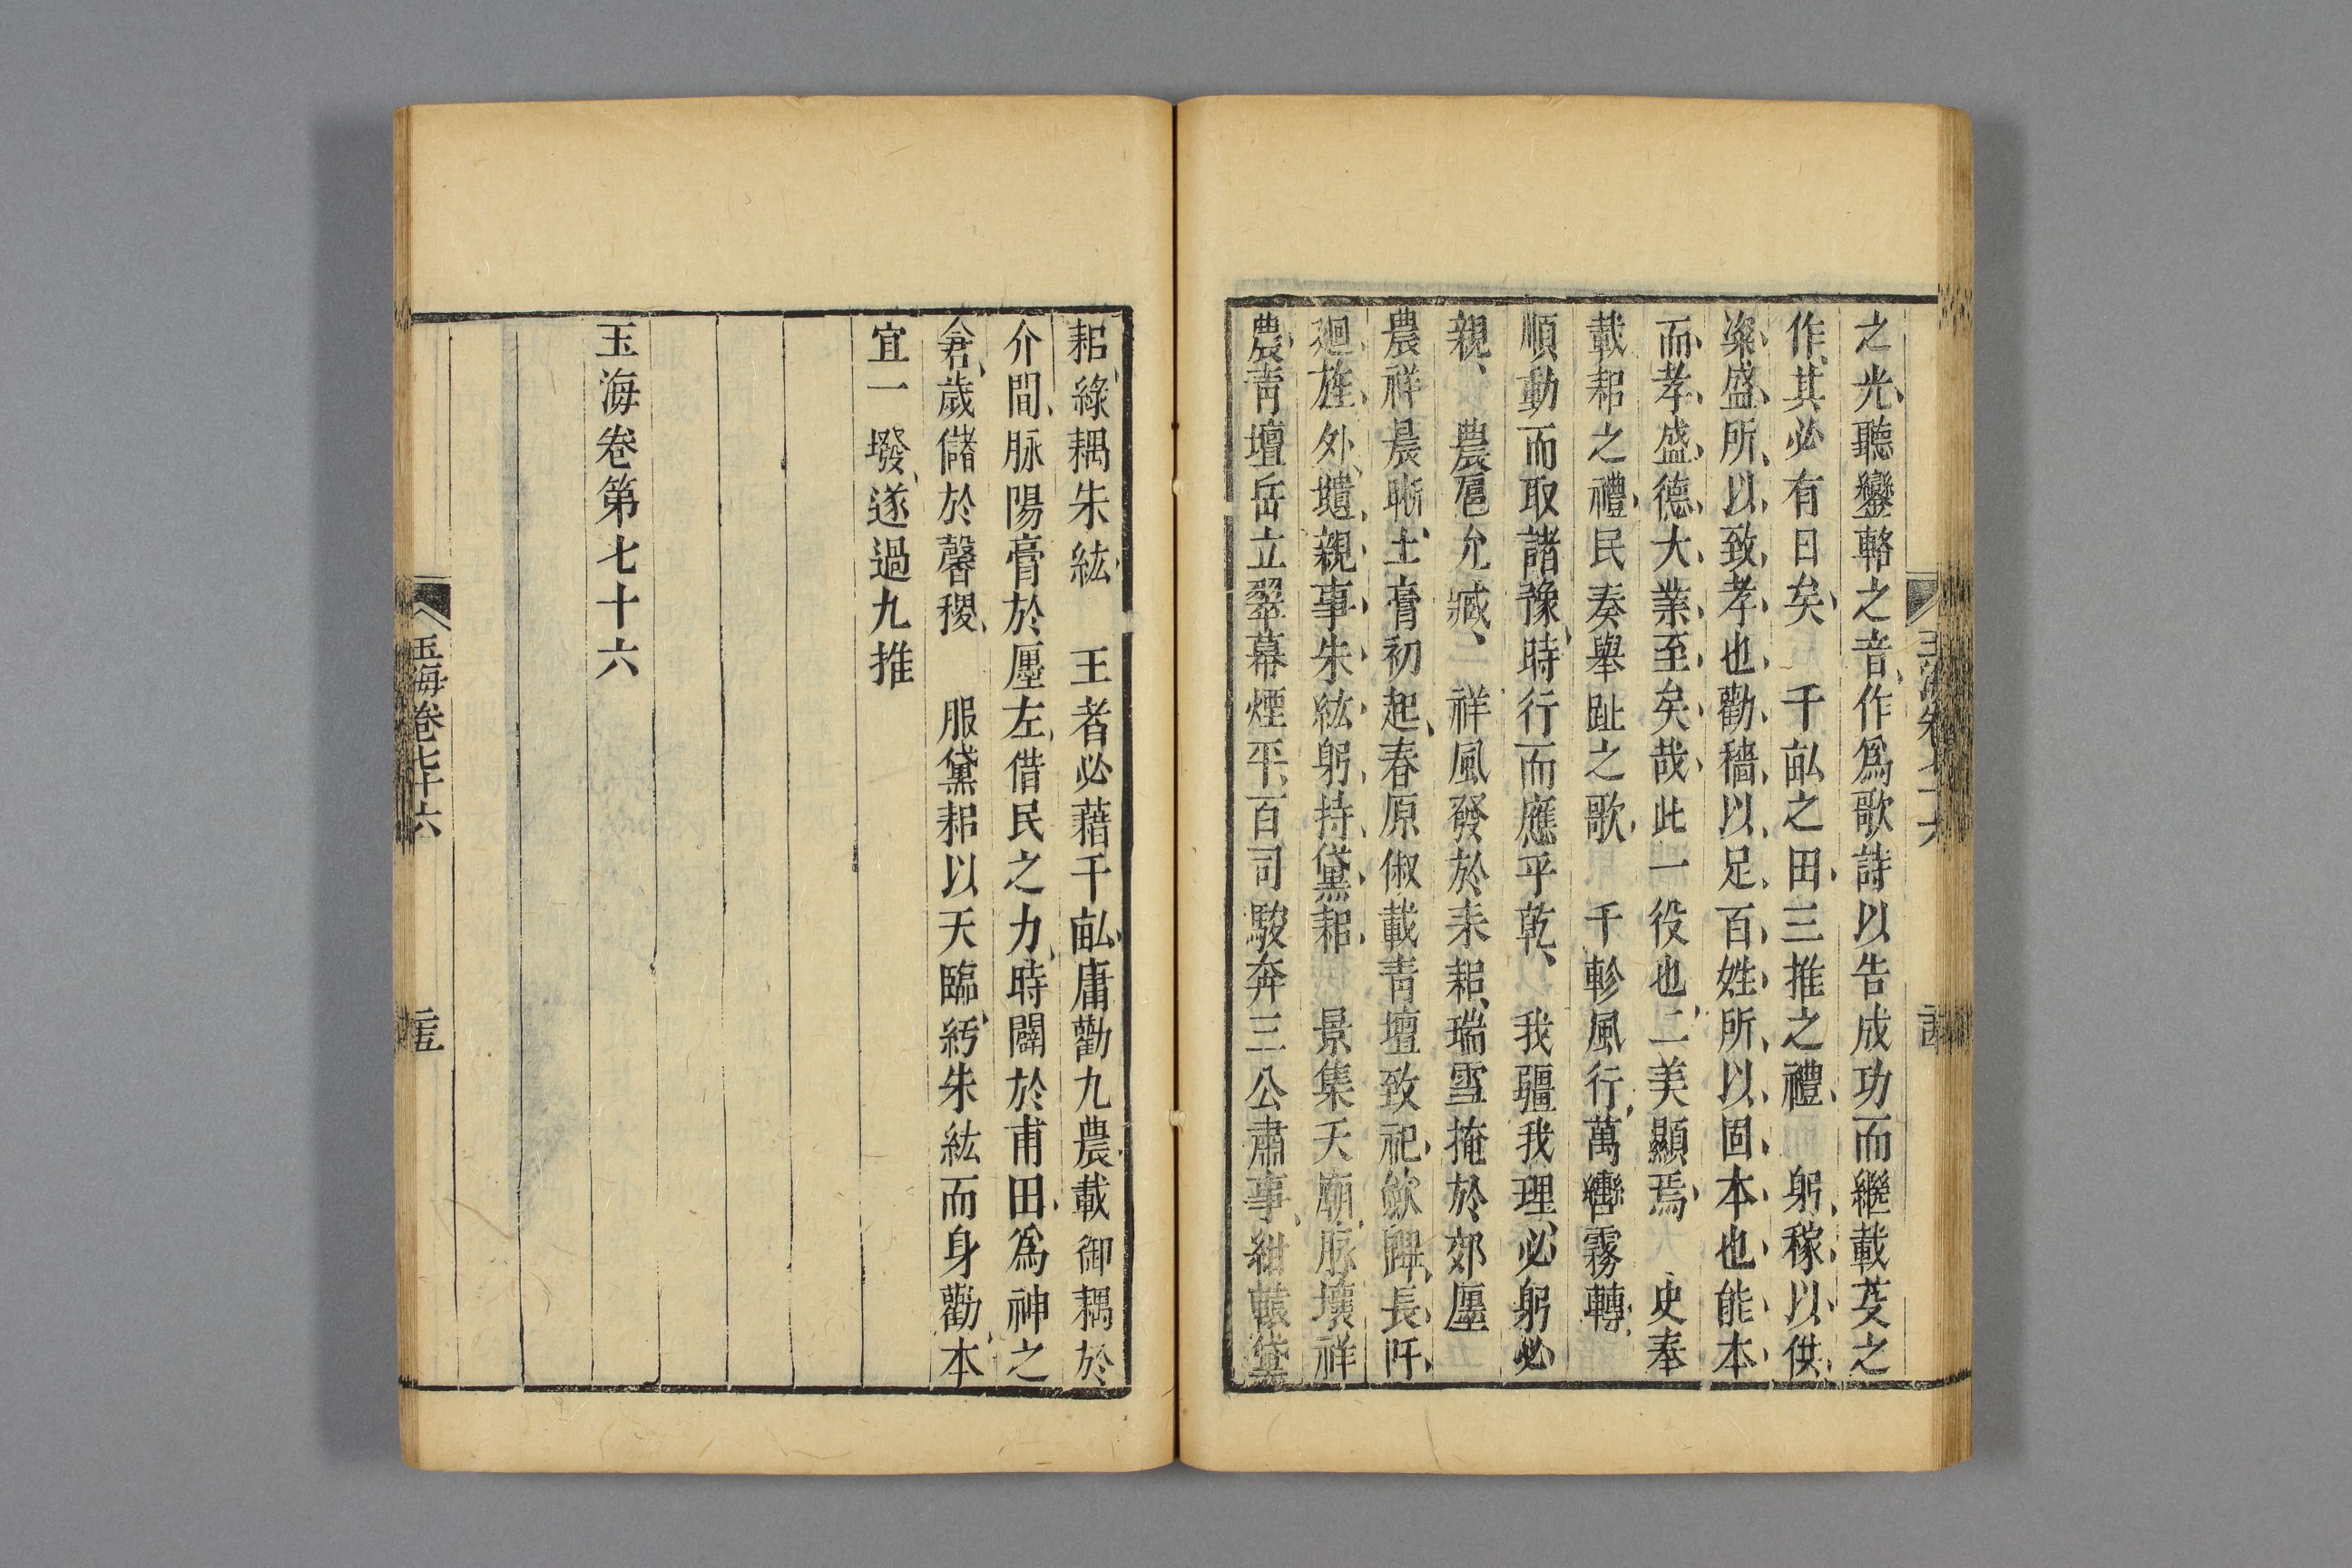 之光聽鑾輅之音作爲歌詩以告成功而繼載芟之
作其必有日矣　千畝之田三推之禮　躬稼以供
粢盛所以致孝也勸穡以足百姓所以固本也能本
而孝盛德大業至矣哉此一役也二美顯焉　史奉
載耜之禮民奏舉趾之歌　千軫風行萬轡霧轉
順動而取諸豫時行而應乎乾　我疆我理必躬必
親　農扈允臧　祥風發於耒耜瑞雪掩於郊廛
農祥晨晰土膏初起春原俶載青壇致祀歛蹕長阡
迴旌外壝親事朱紘躬持黛耜　景集天廟脉壤祥
農青壇岳立翠幕煙平百司駿奔三公肅事紺轅黛
耜綠耦朱紘　王者必藉千畝庸勸九農載御耦於
介間脉陽膏於廛左借民之力時闢於甫田爲神之
倉歲儲於馨稷　服黛耜以天臨紆朱紘而身勸本
宜一墢遂過九推
玉海卷第七十六
玉海卷七十六